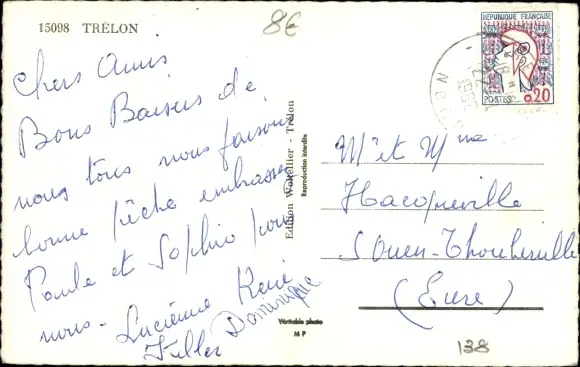 15098 TRÉLON
8€
Chers Amis
Bons Baisers de
nous tous nous faisons
bonne pêche embrasse
Paule et Sophie pour
nous - Lucienne René
Dominique
Edition Wokellier - Trélon
Reproduction interdite
Véritable photo
M P
REPUBLIQUE FRANÇAISE
POSTES 0,20
Mr et Mme
Hacqueville
S Ouen-Thouberville
(Eure)
138